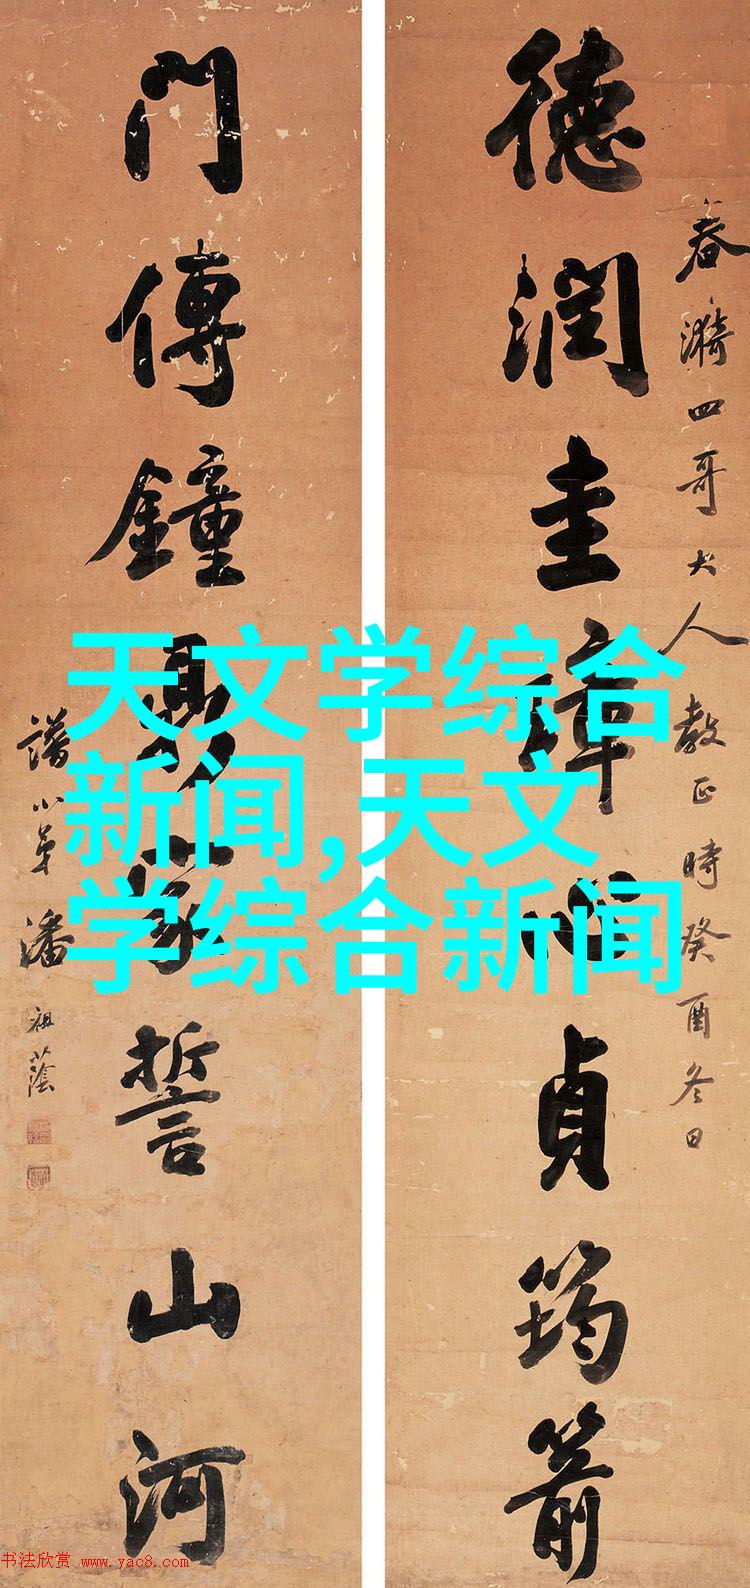 德潤圭璋心貞筠箭
春漪四哥大人教正時癸酉冬日
門傳鐘鼎篆誓山河
譜小弟潘祖蔭
天文学综合
新闻,天文
学综合新闻
书法欣赏 www.yac8.com